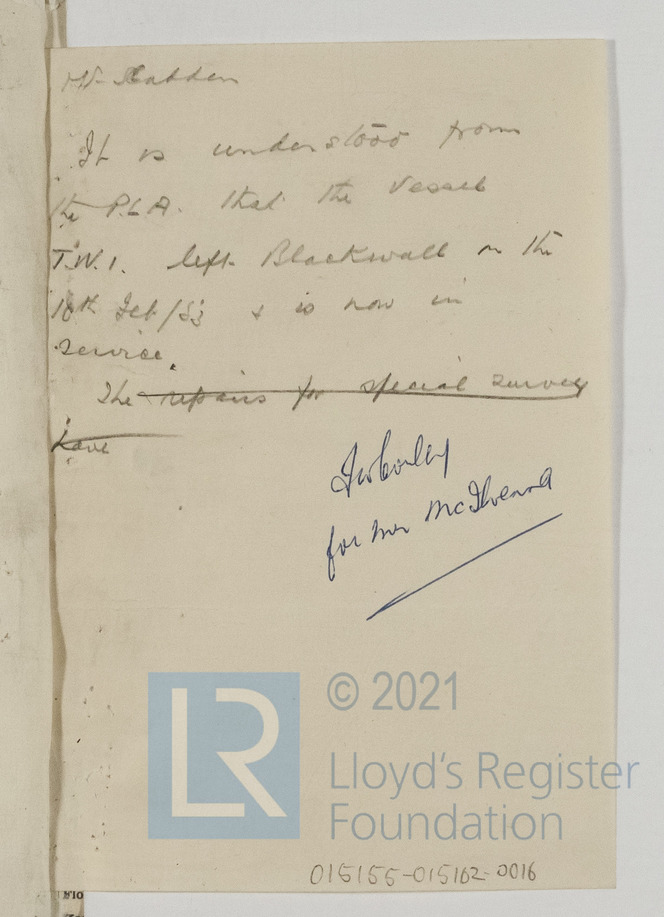 Mr Scadden
It is understood from
the P.L.A. that the vessel
T.W.1. left Blackwall on the
18th Feb/53 & is now in
service.
The repairs for special survey
have
for Mr McIlvenna
LR
© 2021
Lloyd's Register
Foundation
015155-015162-0016
Flo